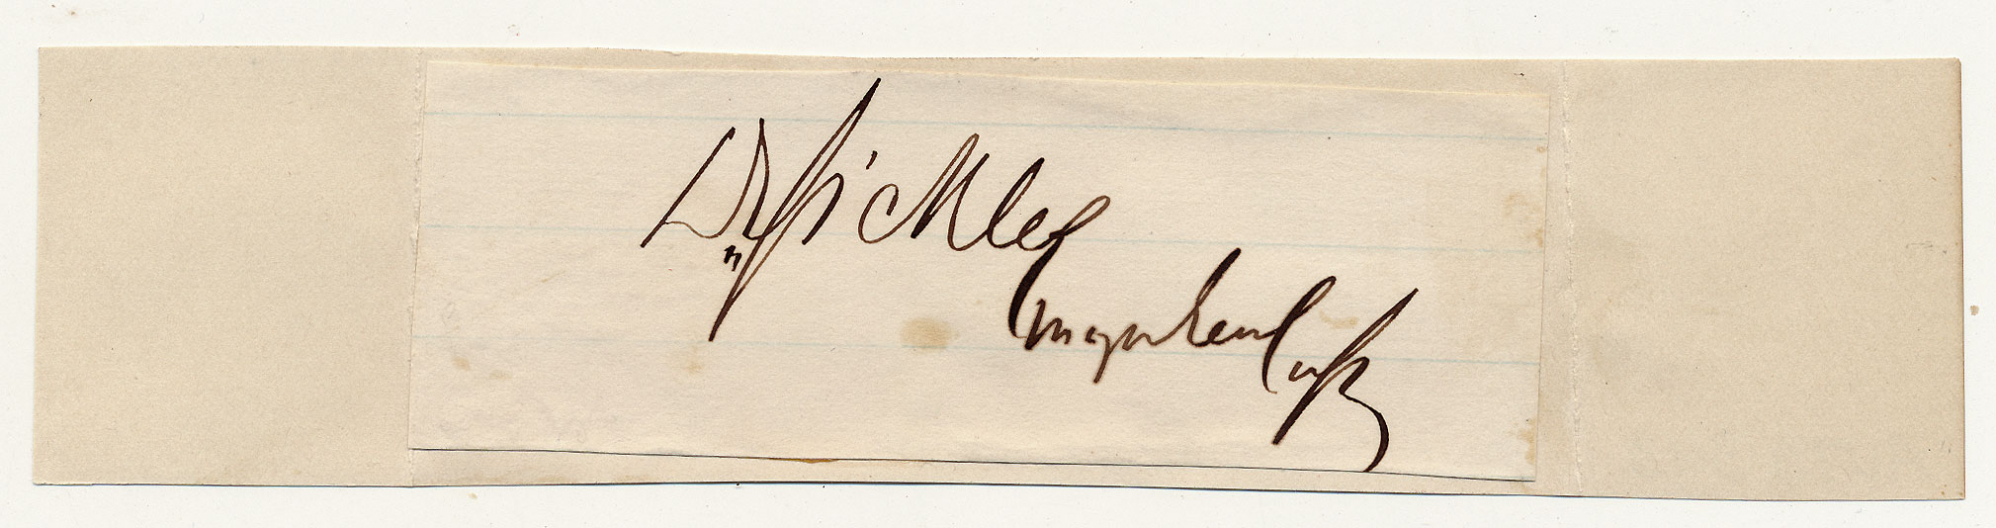 D. Sickles
Major Genl